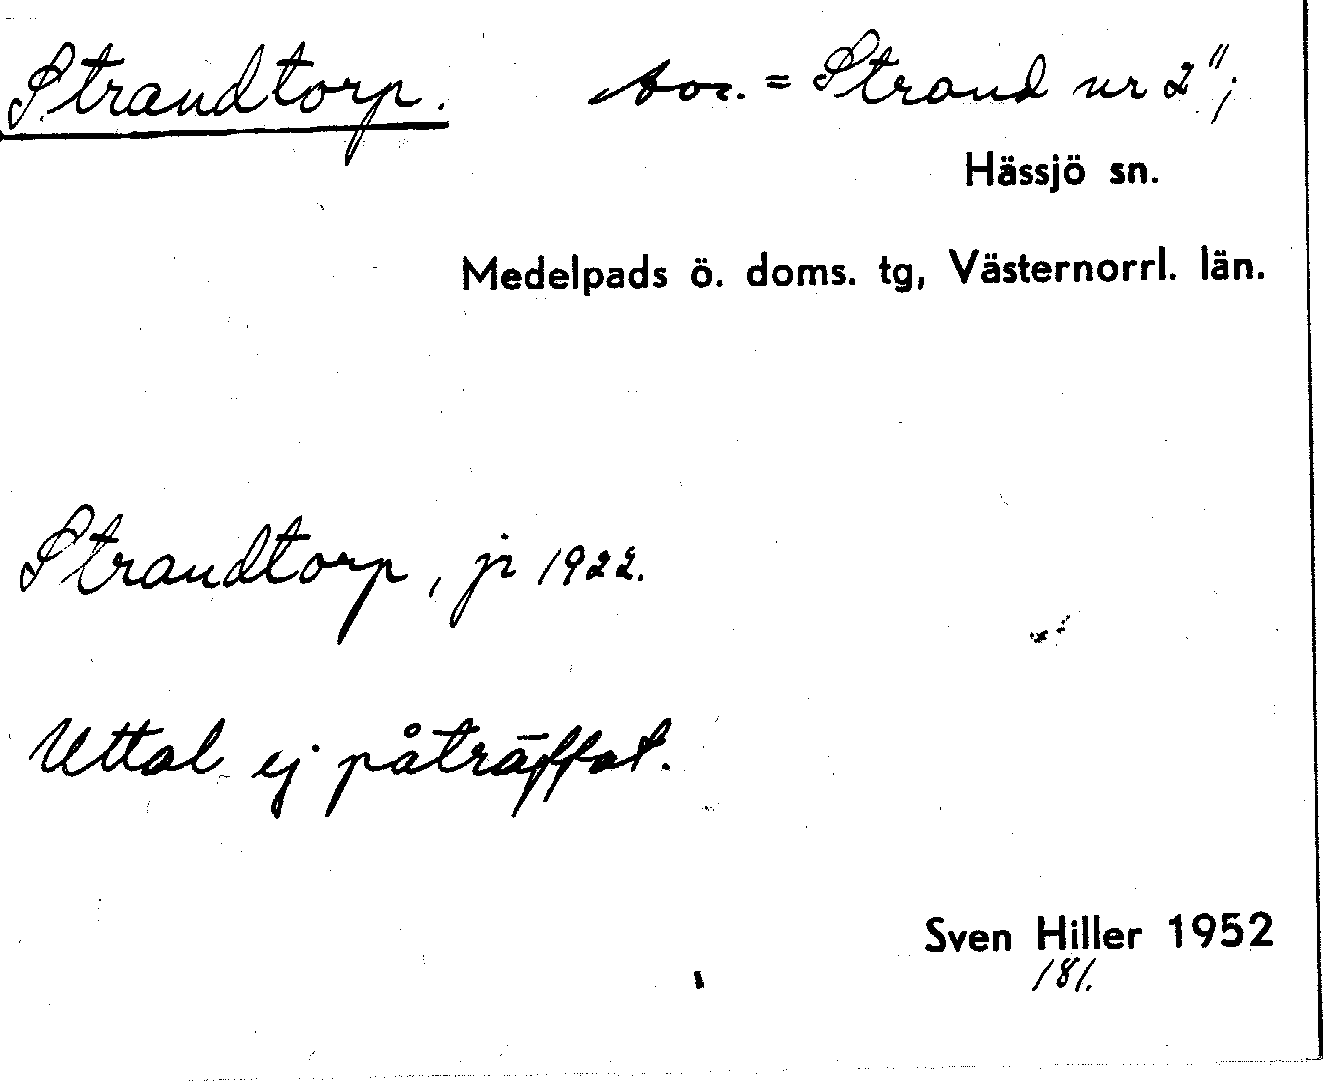 Strandtorp. = Strand nr 2";
Hässjö sn.
Medelpads ö. doms. tg, Västernorrl. län.
Strandtorp, jr 1922.
Uttal ej påträffat.
Sven Hiller 1952
181.